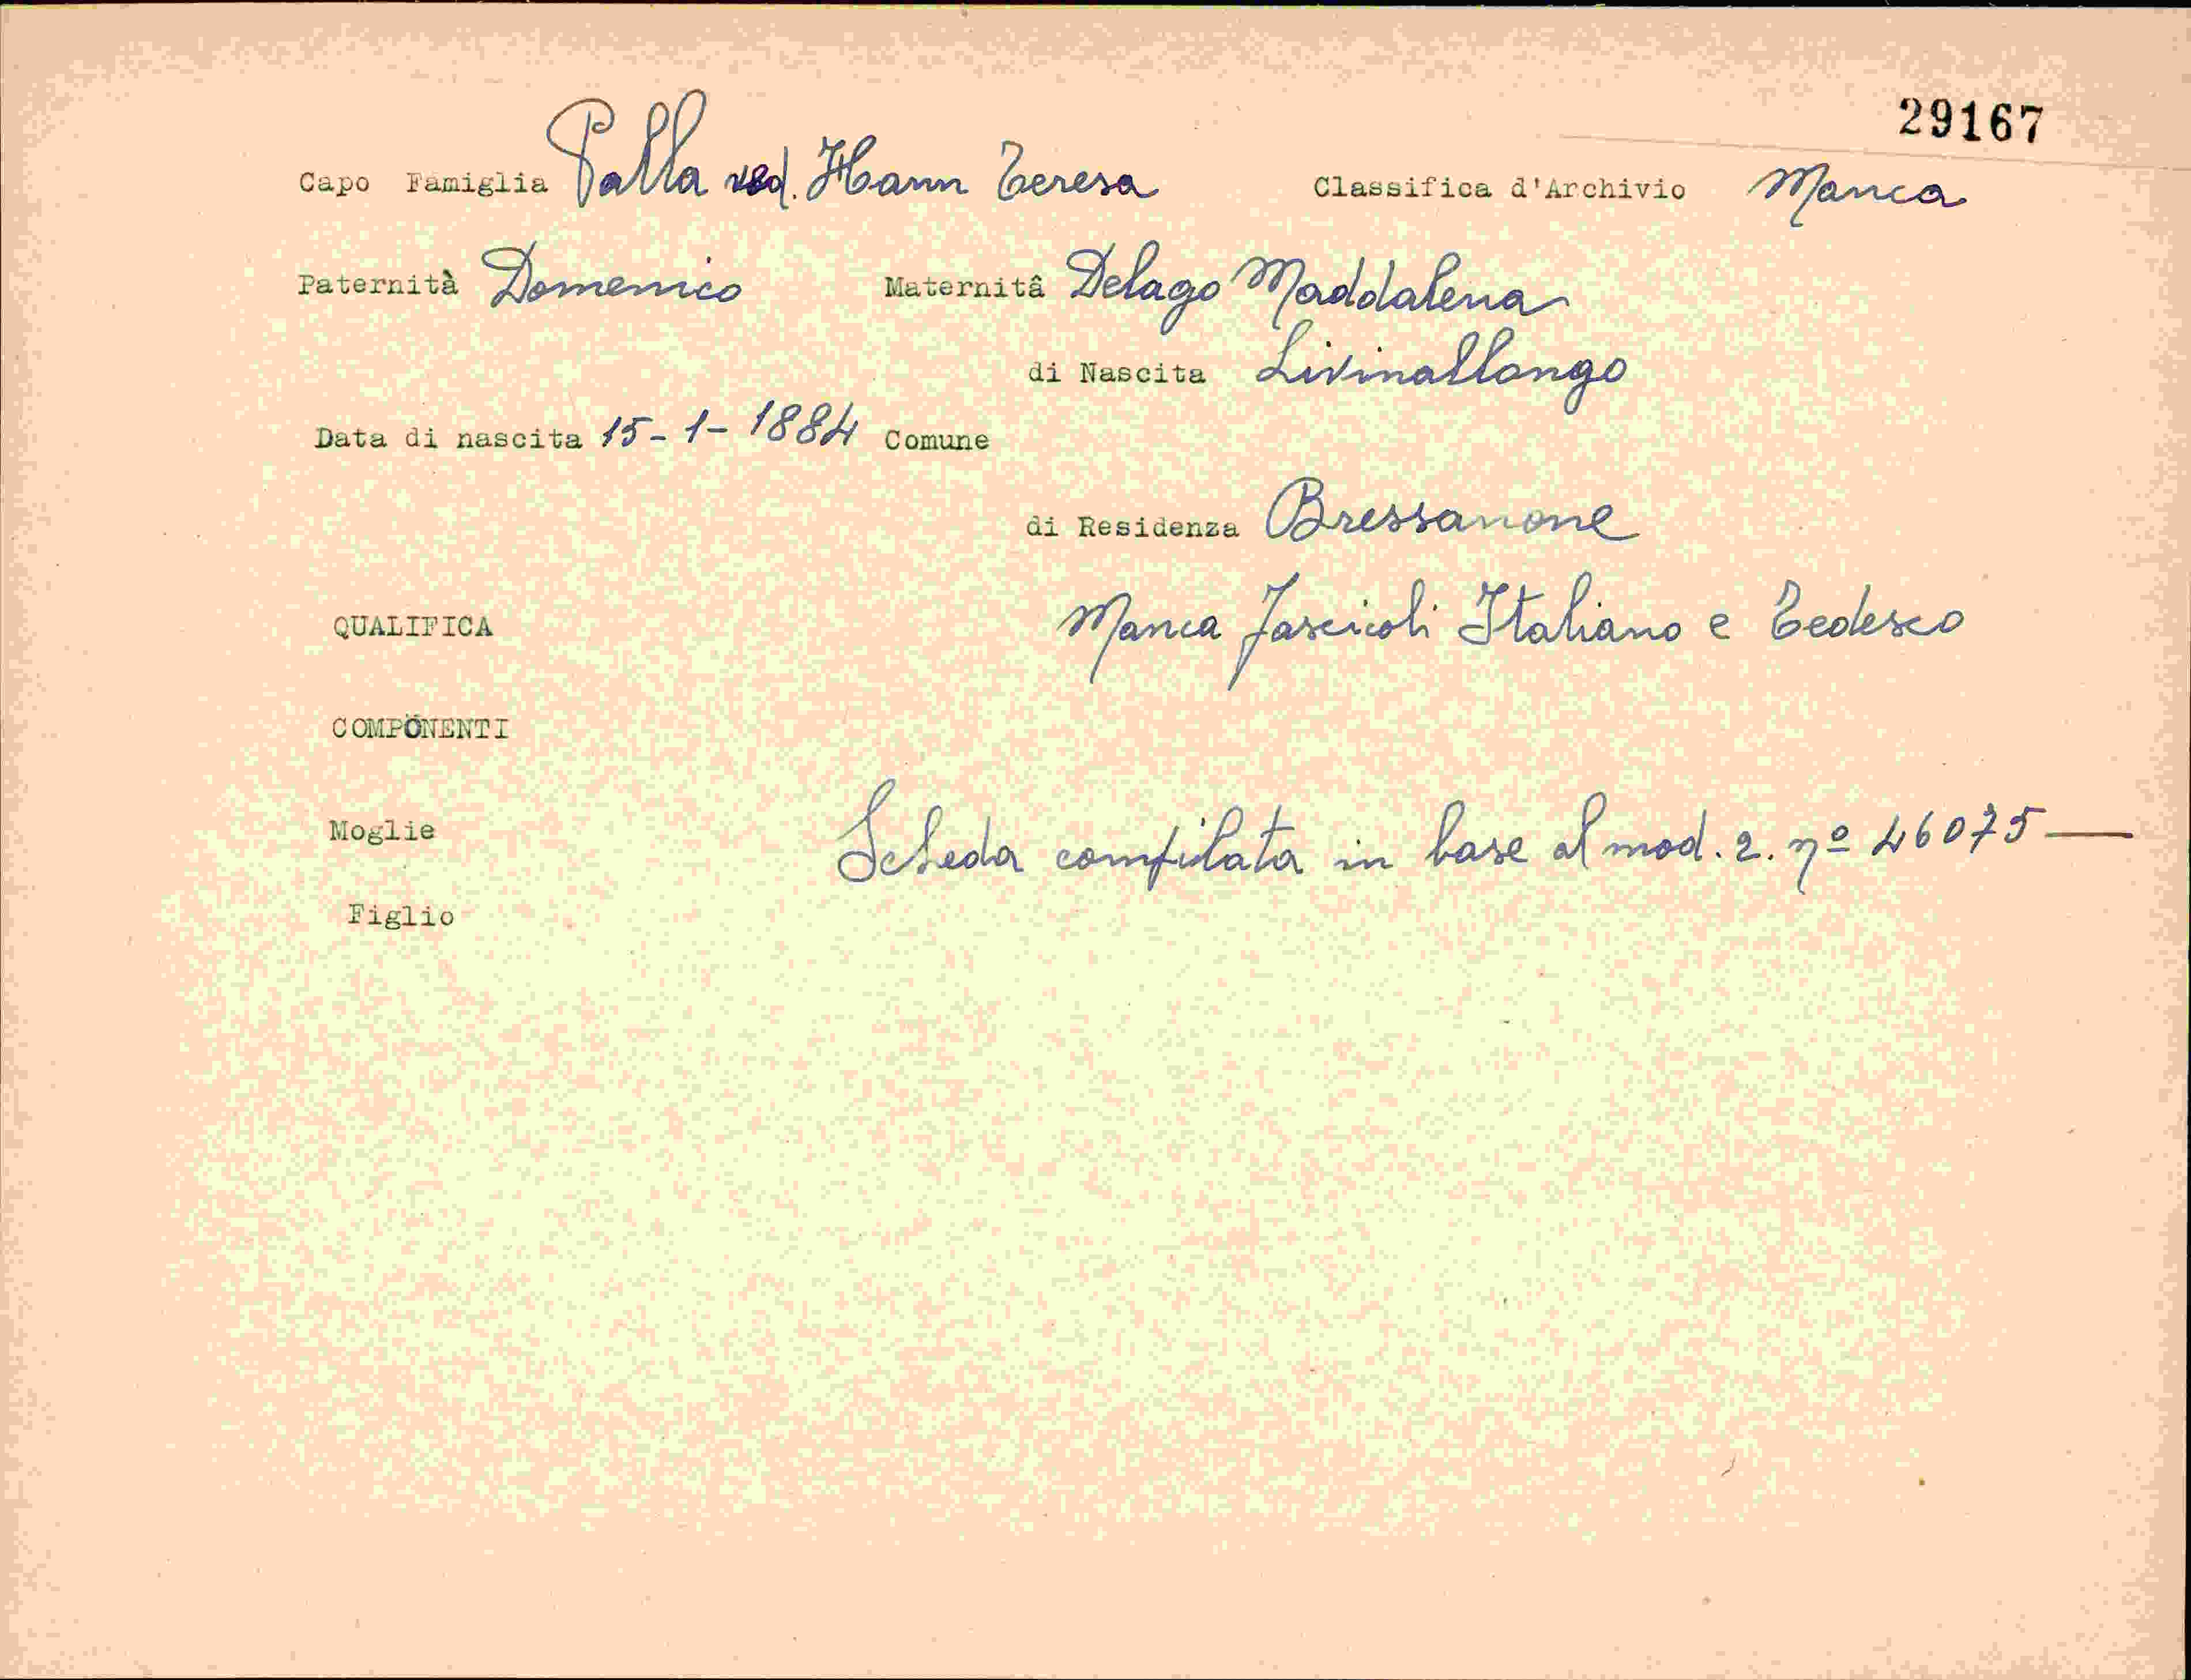 29167
Capo Famiglia Palla ved. Hann Teresa Classifica d'Archivio Manca
Paternità Domenico Maternitâ Delago Maddalena
di Nascita Livinallongo
Data di nascita 15-1-1884 Comune
di Residenza Bressanone
QUALIFICA Manca fascicoli Italiano e Tedesco
COMPONENTI
Moglie Scheda compilata in base al mod. 2. nº 46075—
Figlio